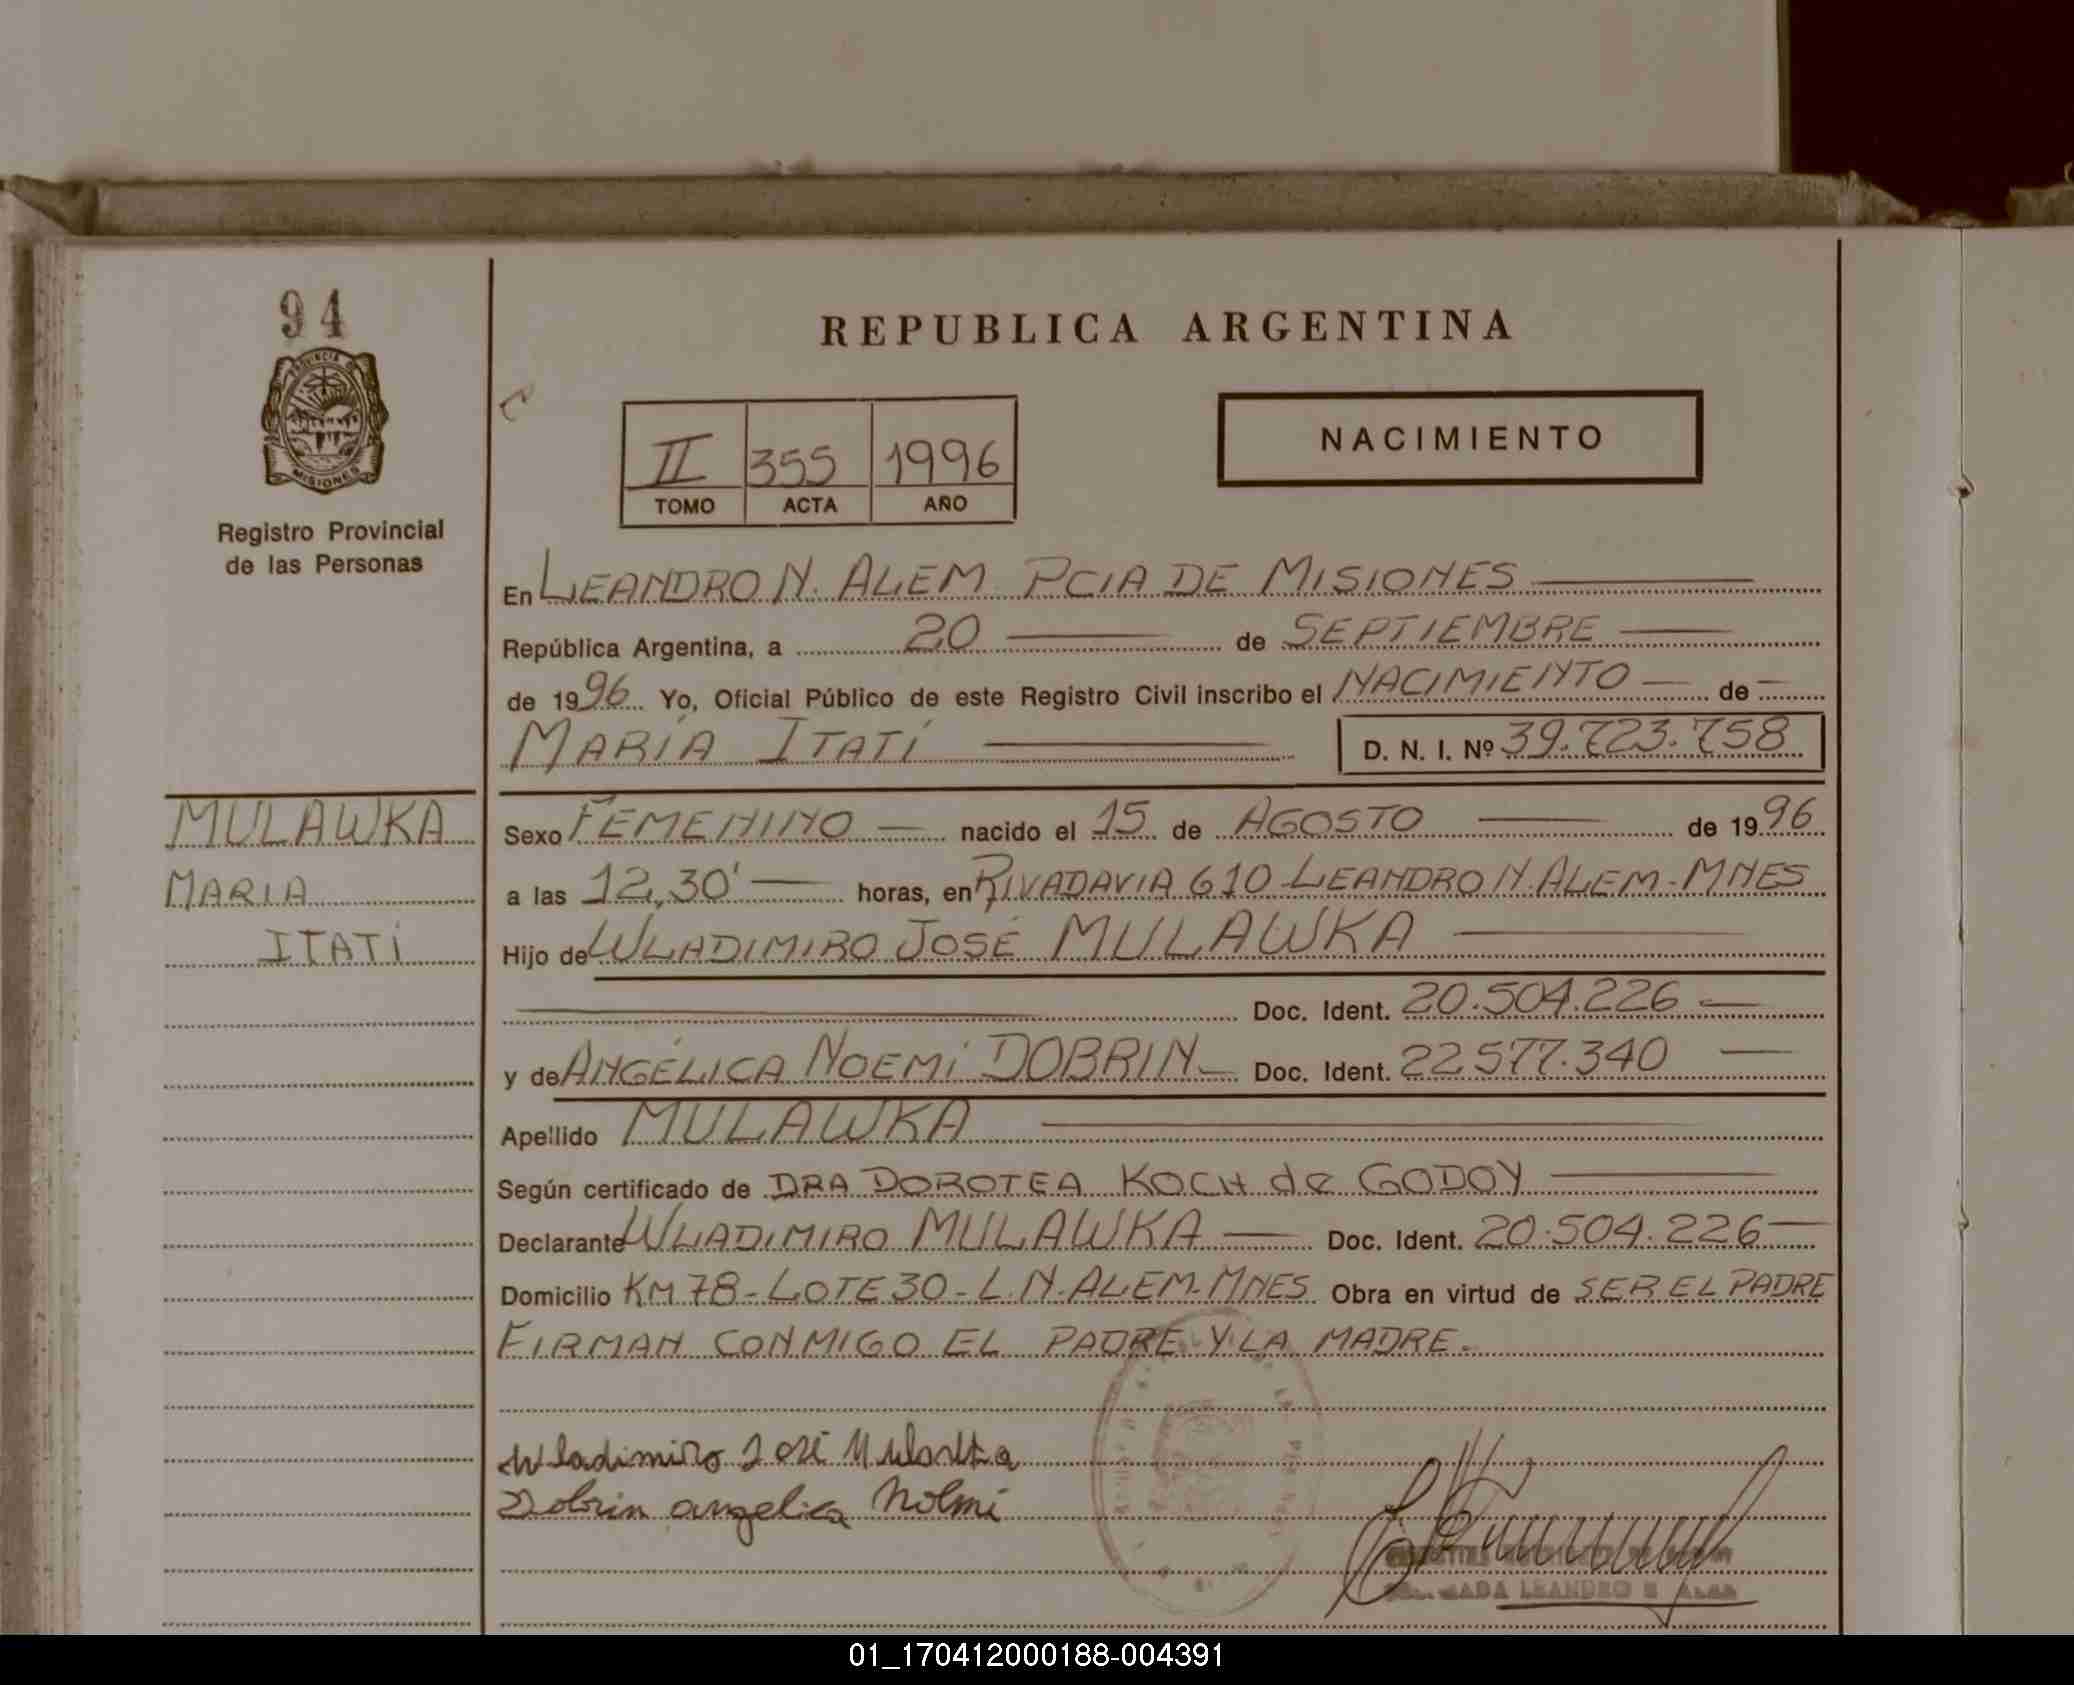 94
PROVINCIA DE
MISIONES
Registro Provincial
de las Personas
REPUBLICA ARGENTINA
II 355 1996
TOMO ACTA AÑO
NACIMIENTO
En LEANDRO N. ALEM PCIA DE MISIONES
República Argentina, a 20 de SEPTIEMBRE
de 1996 Yo, Oficial Público de este Registro Civil inscribo el NACIMIENTO de
MARÍA ITATÍ D. N. I. Nº 39.723.758
MULAWKA
MARIA
ITATÍ
Sexo FEMENINO nacido el 15 de AGOSTO de 1996
a las 12,30' horas, en RIVADAVIA 610 LEANDRO N. ALEM - MNES
Hijo de WLADIMIRO JOSÉ MULAWKA
Doc. Ident. 20.504.226
y de ANGÉLICA NOEMÍ DOBRIN Doc. Ident. 22.577.340
Apellido MULAWKA
Según certificado de DRA DOROTEA KOCH de GODOY
Declarante WLADIMIRO MULAWKA Doc. Ident. 20.504.226
Domicilio KM 78 - LOTE 30 - L. N. ALEM - MNES Obra en virtud de SER EL PADRE
FIRMAN CONMIGO EL PADRE Y LA MADRE.
Wladimiro José Mulawka
Dobrin angelica Noemi
LEANDRO N ALEM
01_170412000188-004391